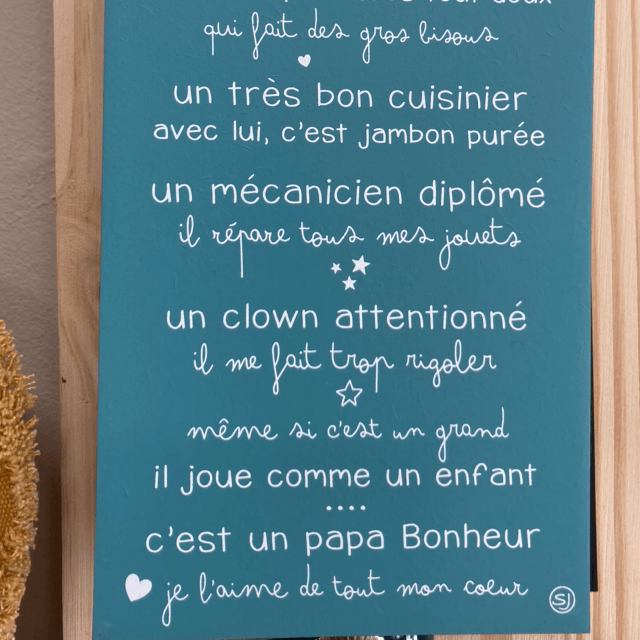 qui fait des gros bisous
un très bon cuisinier
avec lui, c'est jambon purée
un mécanicien diplômé
il répare tous mes jouets
un clown attentionné
il me fait trop rigoler
même si c'est un grand
il joue comme un enfant
....
c'est un papa Bonheur
je l'aime de tout mon coeur
SJ